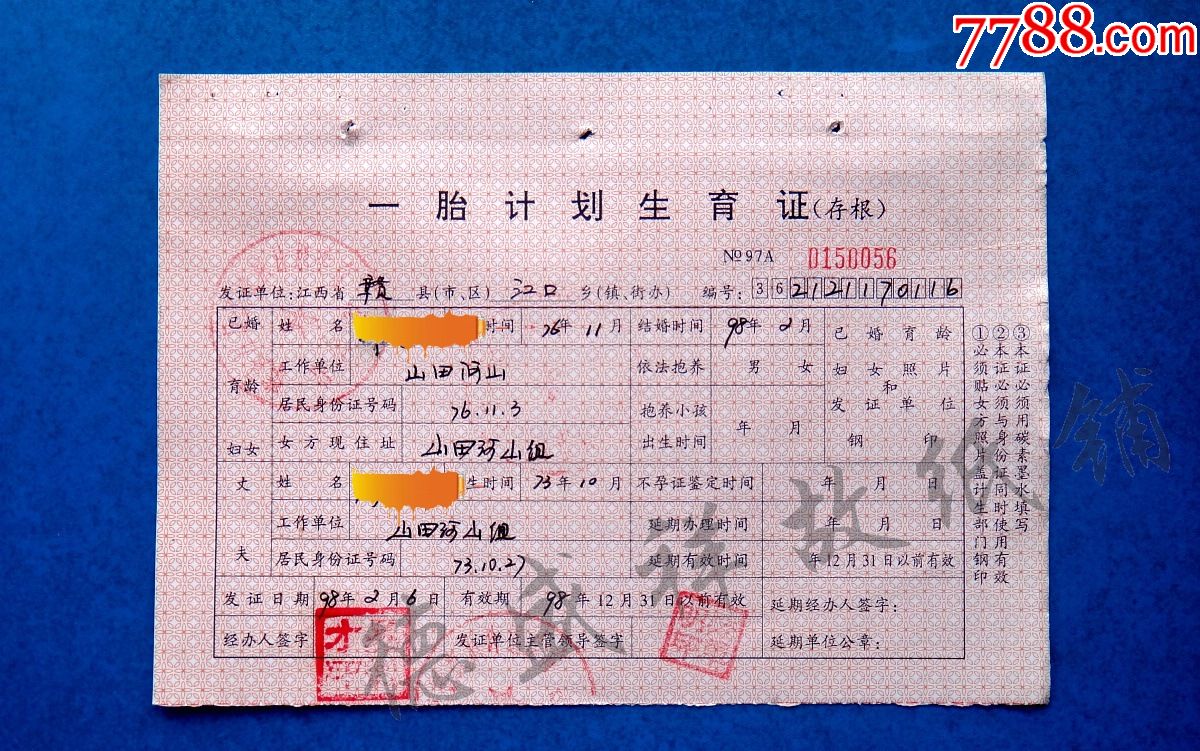 7788.com
一胎计划生育证(存根)
№97A 0150056
发证单位:江西省 赣 县(市、区) 江口 乡(镇、街办) 编号: 3621211170116
已婚育龄妇女
姓名 时间 76年11月 结婚时间 98年2月
工作单位 山田河山 依法抱养 男 女
居民身份证号码 76.11.3 抱养小孩出生时间 年 月
女方现住址 山田河山组
已婚育龄妇女照片和发证单位钢印
丈夫
姓名 生时间 73年10月 不孕证鉴定时间 年 月 日
工作单位 山田河山组 延期办理时间 年 月 日
居民身份证号码 73.10.27 延期有效时间 年12月31日以前有效
发证日期 98年2月6日 有效期 98年12月31日以前有效 延期经办人签字:
经办人签字 发证单位主管领导签字 延期单位公章:
①必须贴女方照片盖计生部门钢印
②本证必须与身份证同时使用有效
③本证必须用碳素墨水填写
德盛祥故纸铺